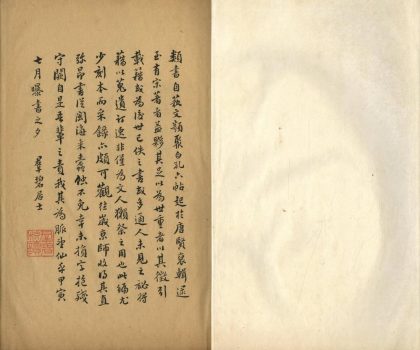 類書自藝文類聚白孔六帖起於唐賢裒輯逮
至有宗著者益夥其足以為世重者以其徵引
載籍故為後世已佚之書故多通人未見之祕得
藉以蒐遺訂逸非僅為文人獺祭之用也此編尤
少刻本而采錄亦頗可觀往歲京師收得其直
殊昂書從閩海來蟲蝕不免幸未損字抱殘
守闕自是吾輩之責我其為脈望仙乎甲寅
七月曝書之夕　羣碧居士